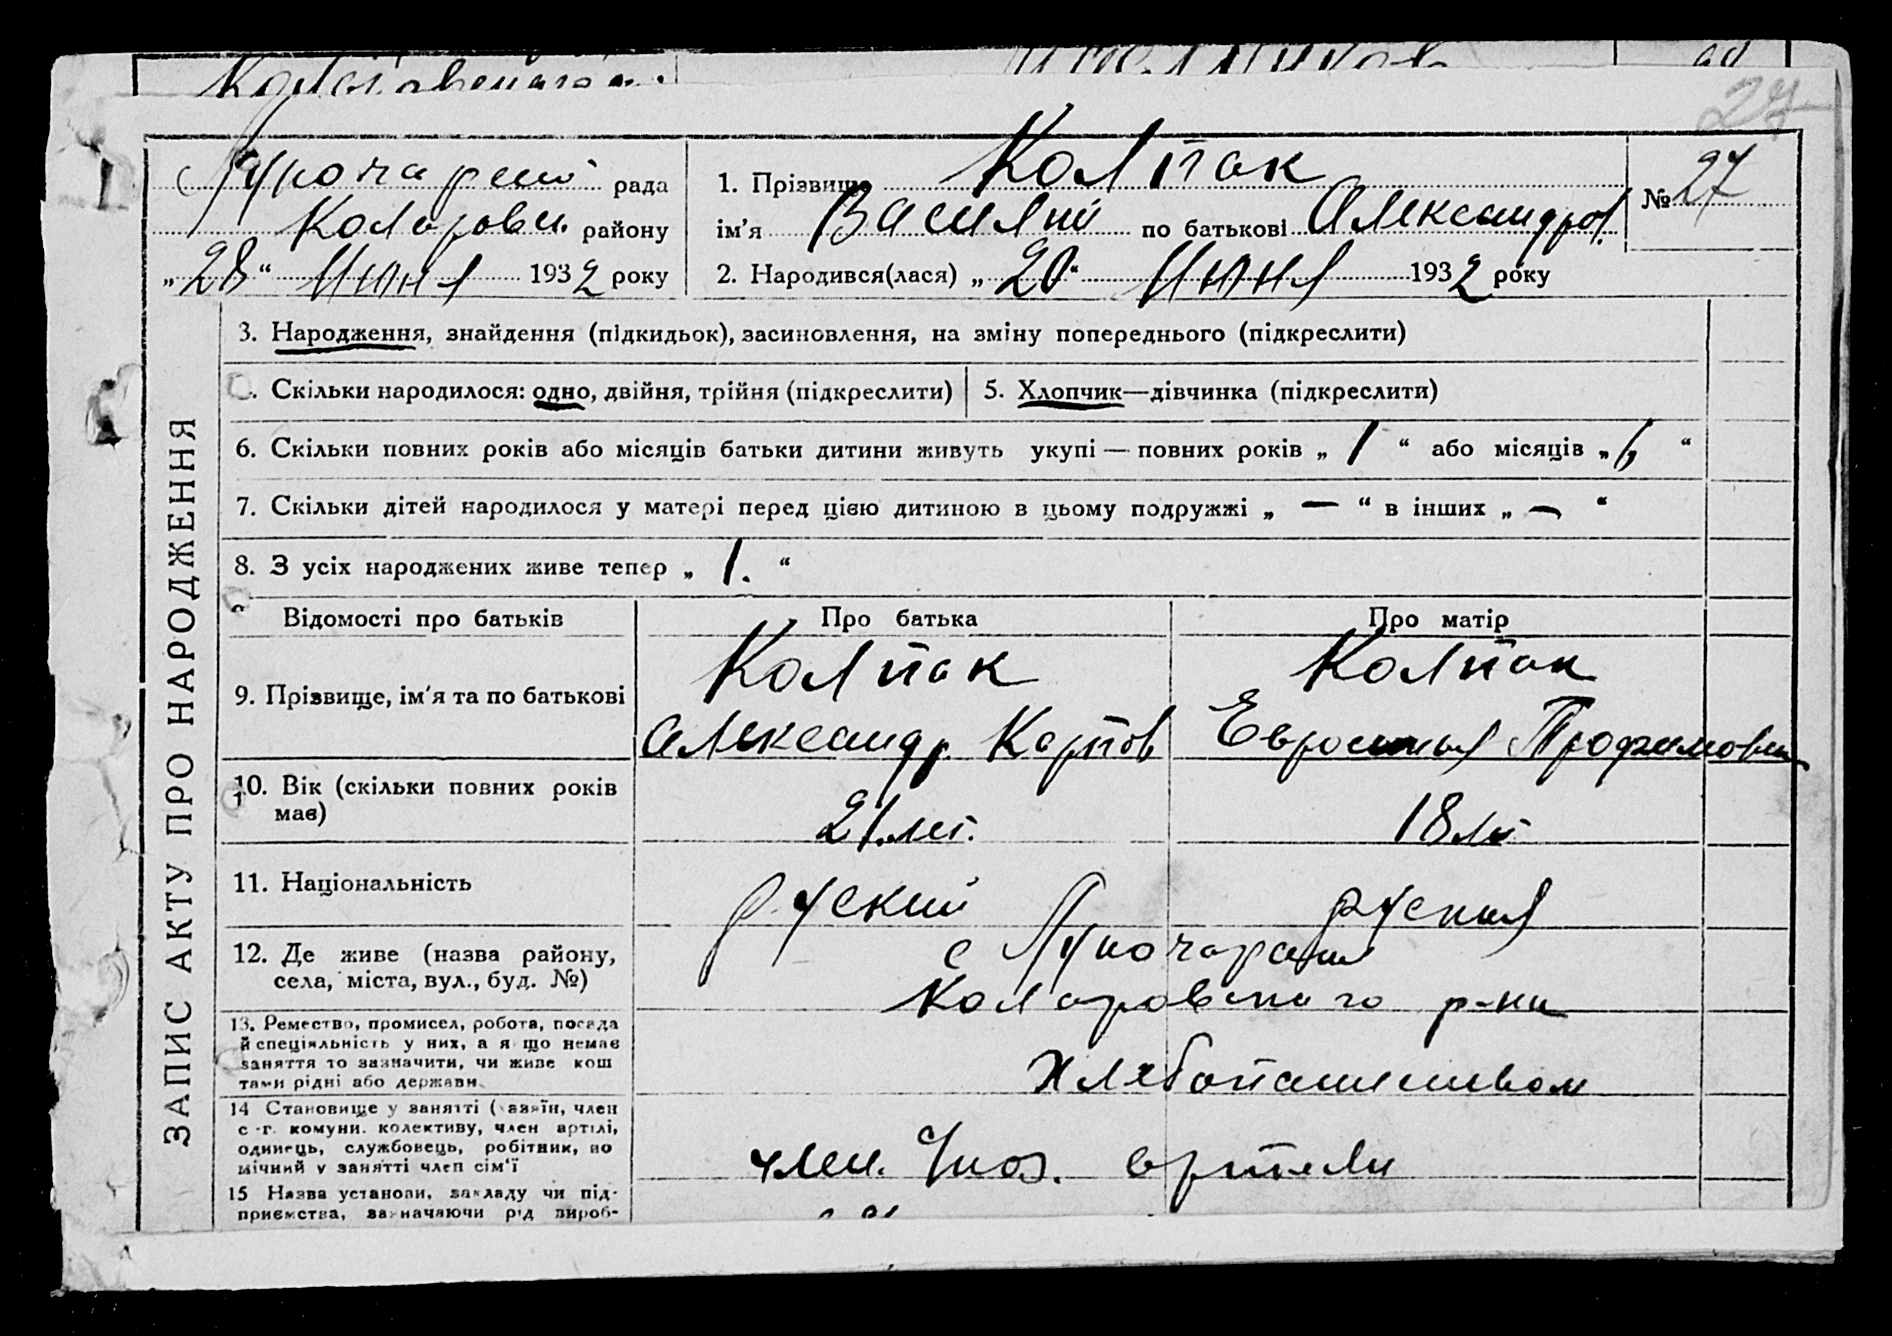 27
с Луночарской рада
Коларовск. району
„28“ Июня 1932 року
1. Прізвище Колпак
ім’я Василий по батькові Александров.
№ 27
2. Народився(лася) „20“ Июня 1932 року
ЗАПИС АКТУ ПРО НАРОДЖЕННЯ
3. Народження, знайдення (підкидьок), засиновлення, на зміну попереднього (підкреслити)
. Скільки народилося: одно, двійня, трійня (підкреслити)
5. Хлопчик—дівчинка (підкреслити)
6. Скільки повних років або місяців батьки дитини живуть укупі — повних років „ 1 “ або місяців „ “
7. Скільки дітей народилося у матері перед цією дитиною в цьому подружжі „ — “ в інших „ — “
8. З усіх народжених живе тепер „ 1. “
Відомості про батьків
Про батька
Про матір
9. Прізвище, ім’я та по батькові
Колпак
Александр Карпов
Колпак
Евросиния Трофимовна
10. Вік (скільки повних років має)
21 лет.
18 лет
11. Національність
руский
руская
12. Де живе (назва району,
села, міста, вул., буд. №)
с Луночарск
Коларовского р-на
13. Ремество, промисел, робота, посада
й спеціяльність у них, а я що немає
заняття то зазначити, чи живе кош
тами рідні або держави
Хлебопашеством
14 Становище у занятті (хазяїн, член
с -г. комуни. колективу, член артілі,
одинець, службовець, робітник, по
мічний у занятті член сім’ї
член. артели
15 Назва установи, закладу чи під-
приємства, зазначаючи рід вироб-